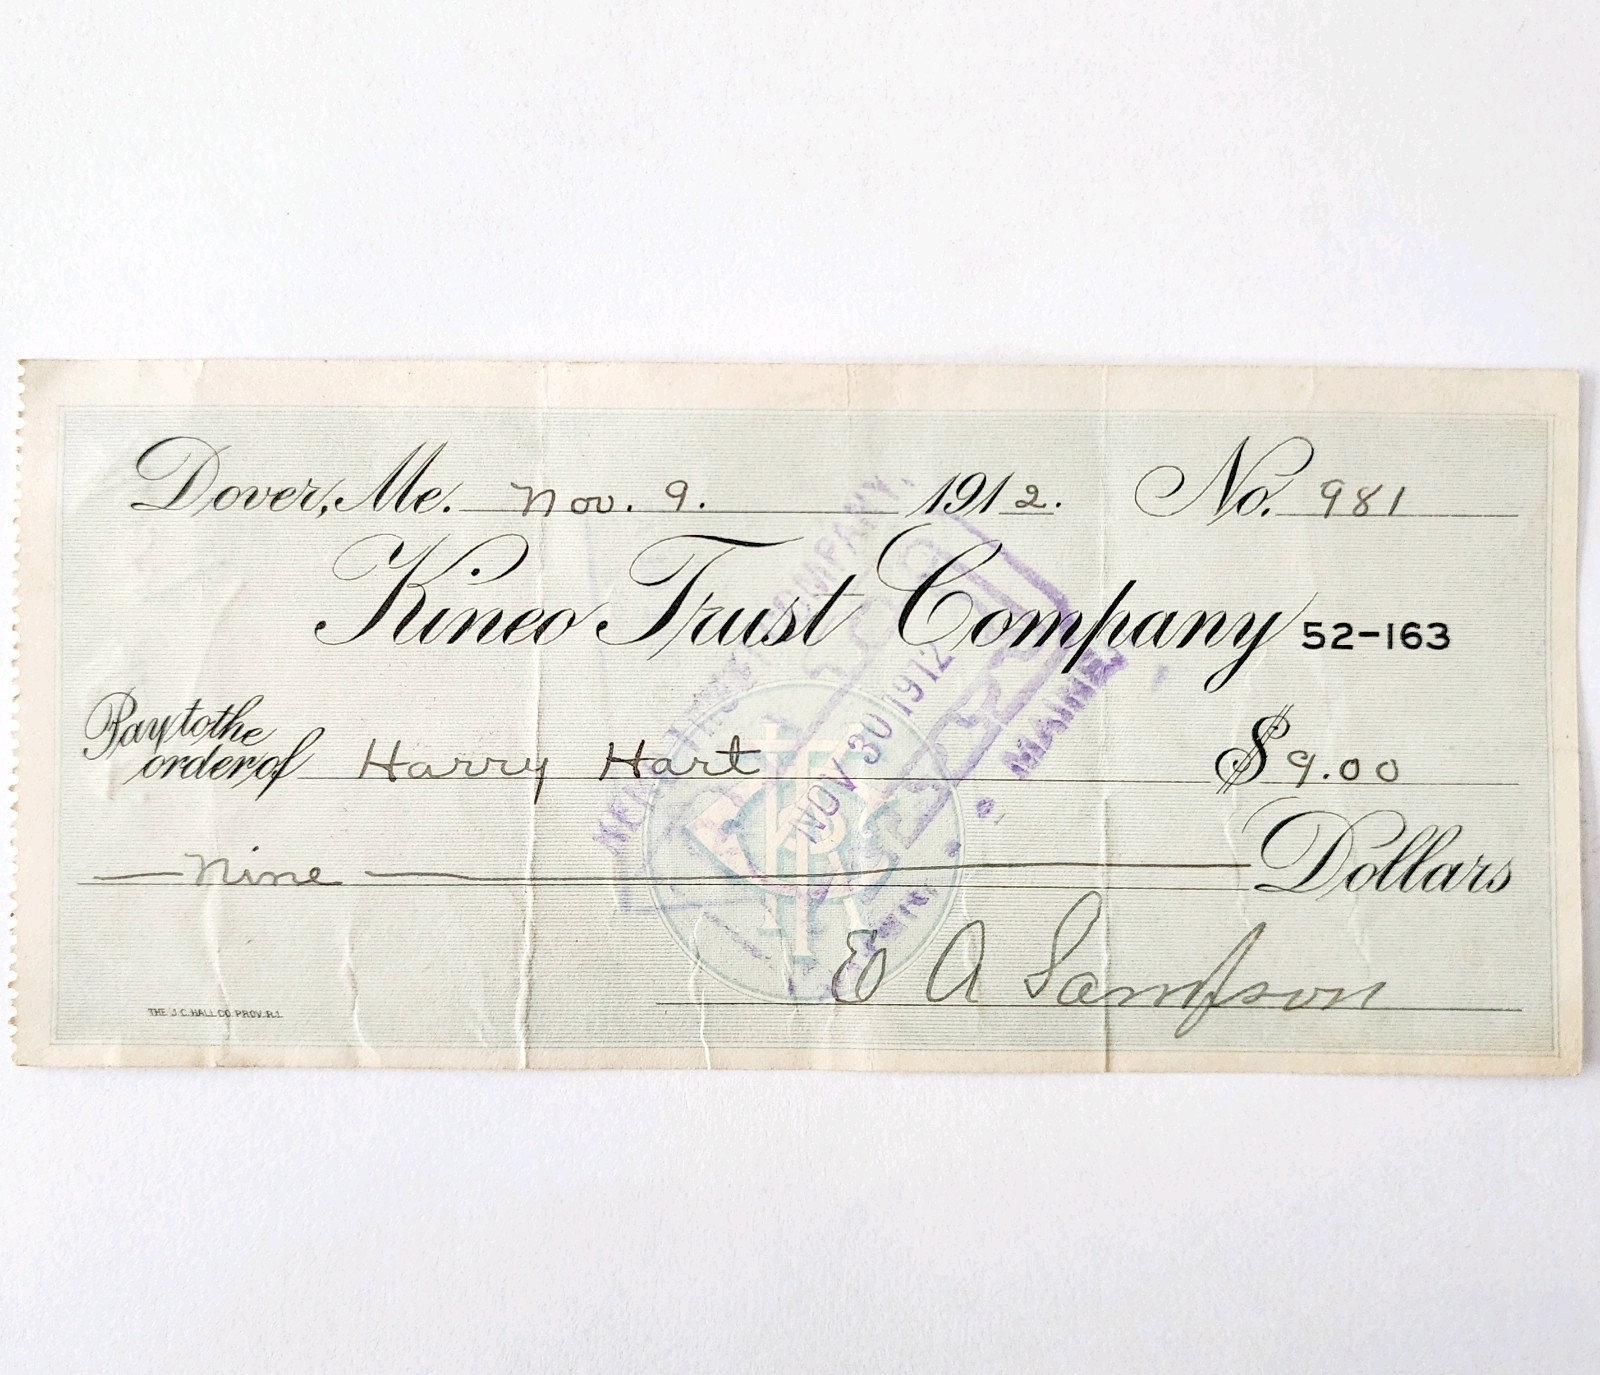 Dover, Me. Nov. 9. 1912. No. 981
Kineo Trust Company 52-163
Pay to the
order of Harry Hart $ 9.00
Nine Dollars
E A Sampson
THE J.C. HALL CO. PROV. R.I.
COMPANY,
NOV 30 1912
MAINE